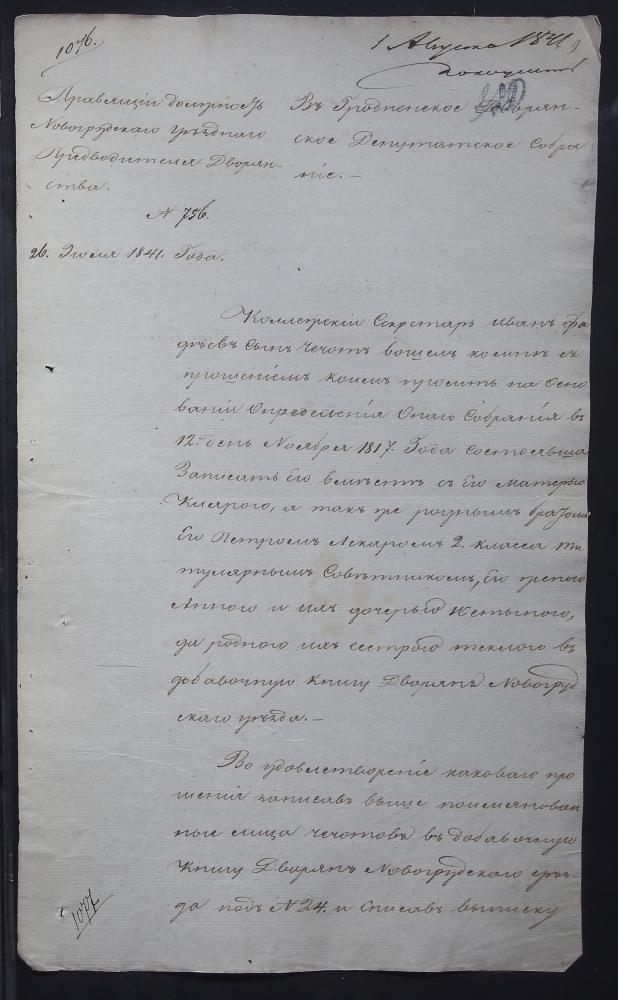 1076.
1 Августа 1841
Правящій должность
Новогрудскаго уѣзднаго
Предводителя Дворян-
ства.
N 756.
26. Іюля 1841. Года.
Въ Гродненское Дворян-
ское Депутатское Собра
ніе.-
Коллежскій Секретарь Иванъ Фа
дѣевъ Сынъ Чечотъ вошелъ ко мнѣ съ
прошеніемъ коимъ проситъ на Осно
ваніи Определенія Онаго Собранія въ
12. день Ноября 1817. Года состоявша
Записать Его вмѣстѣ съ Его Матерью
Кларою, а такъ же роднымъ братомъ
Его Петромъ Лекаремъ 2. класса Ти
тулярнымъ Совѣтникомъ, Его женою
Анною и ихъ дочерью Юстыною,
да родною ихъ сестрою Теклею въ
добавочную Книгу Дворянъ Новогруд
скаго уѣзда.-
Во удовлетвореніе каковаго про
шенія записавъ выше поименован
ные лица Чечотовъ въ добавочную
Книгу Дворянъ Новогрудскаго уѣз-
да подъ N 24. и списавъ выписку
1077